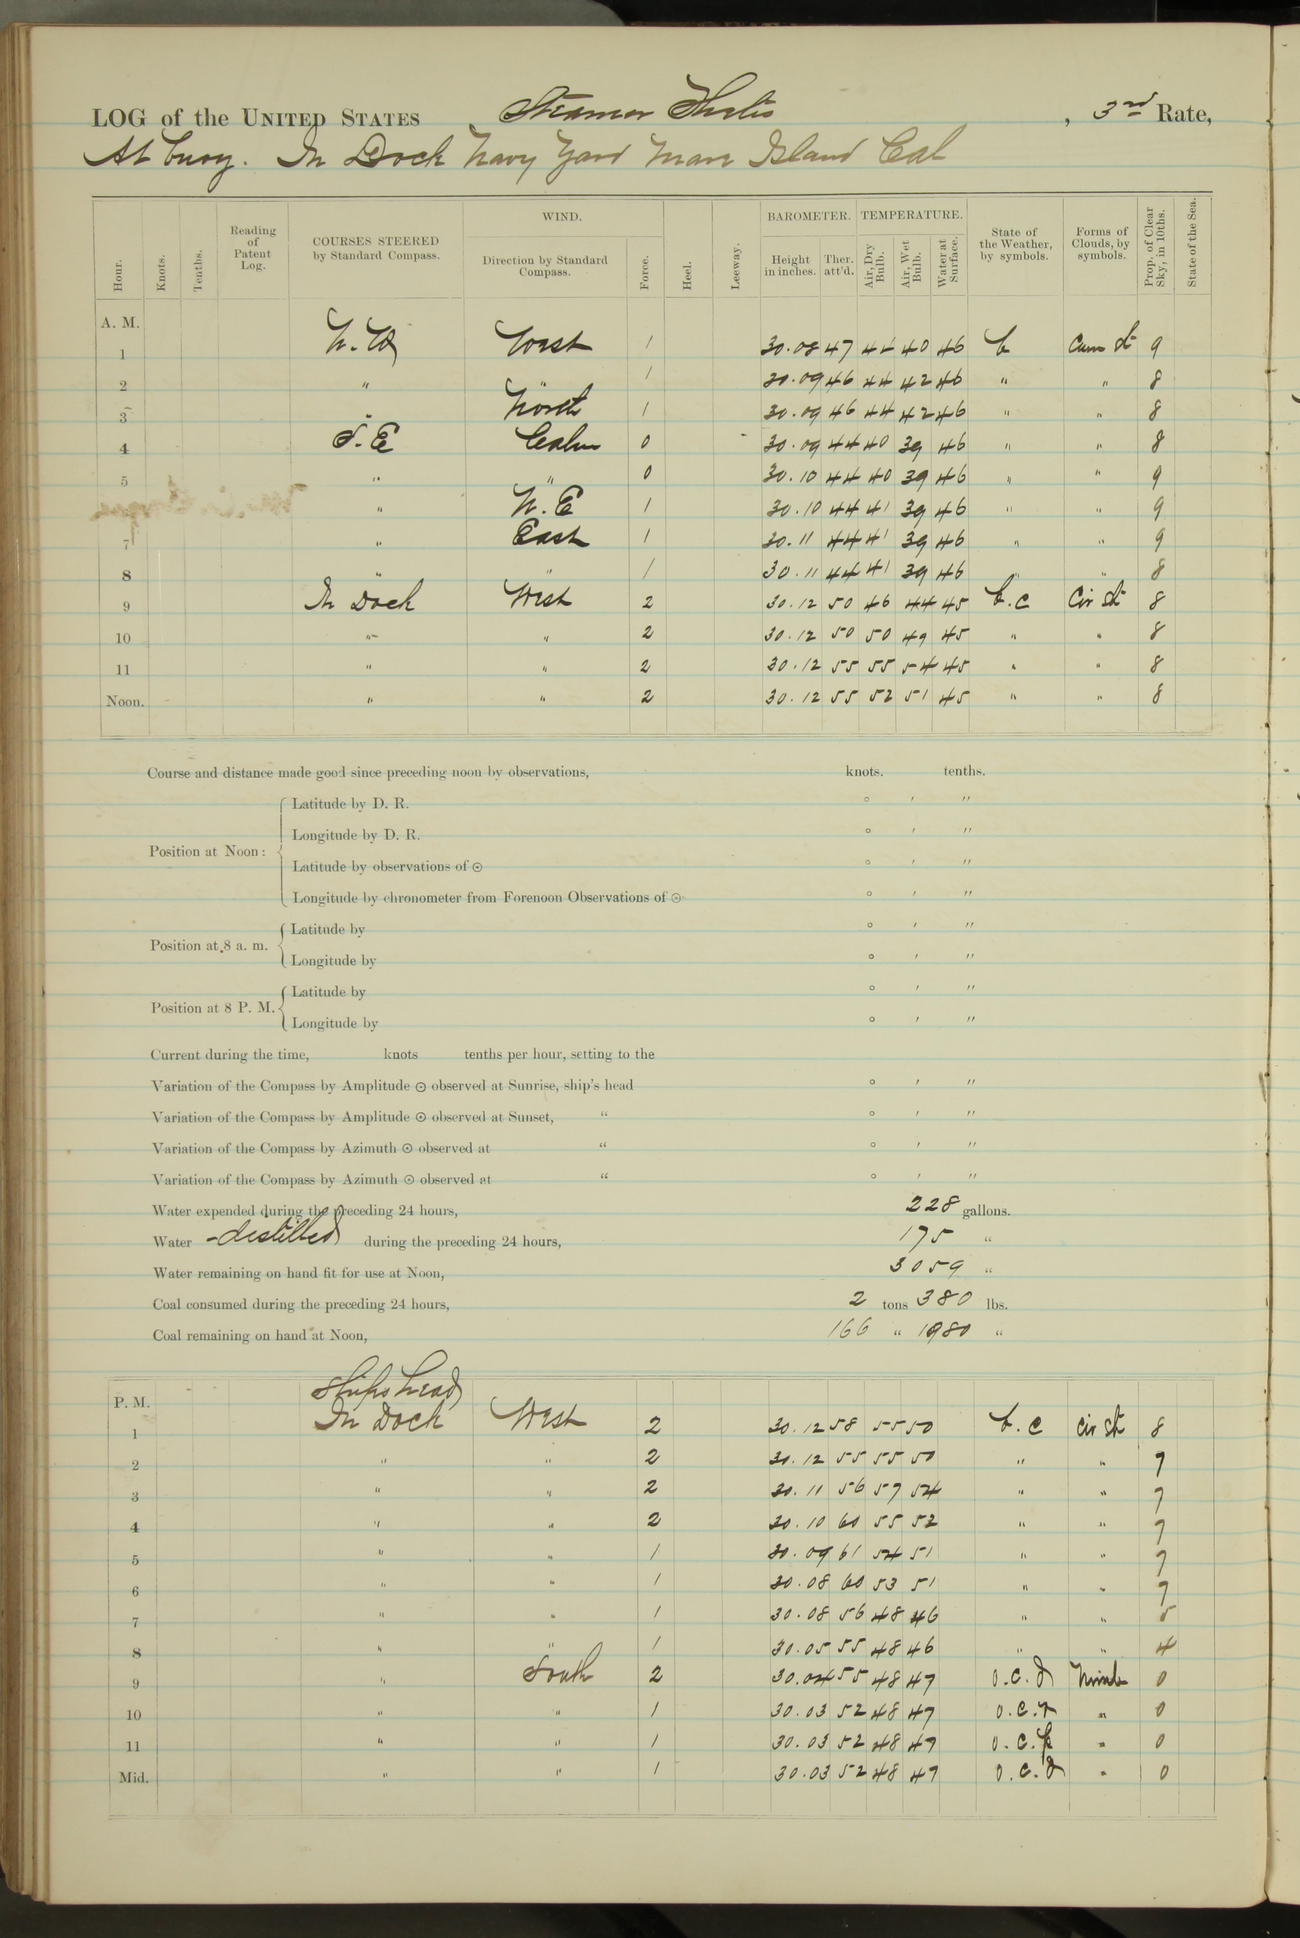 LOG of the UNITED STATES Steamer Thetis, 3rd Rate,
At buoy. In Dock Navy Yard Mare Island Cal
Hour. Knots. Tenths. Reading of Patent Log. COURSES STEERED by Standard Compass. WIND. Direction by Standard Compass. Force. Heel. Leeway. BAROMETER. Height in inches. Ther. att'd. TEMPERATURE. Air, Dry Bulb. Air, Wet Bulb. Water at Surface. State of the Weather, by symbols. Forms of Clouds, by symbols. Prop. of Clear Sky, in 10ths. State of the Sea.
A. M.
1 N.W West 1 30.08 47 44 40 46 b Cum St 9
2 " " 1 30.09 46 44 42 46 " " 8
3 " North 1 30.09 46 44 42 46 " " 8
4 S.E Calm 0 30.09 44 40 39 46 " " 8
5 " " 0 30.10 44 40 39 46 " " 9
" N.E 1 30.10 44 41 39 46 " " 9
7 " East 1 30.11 44 41 39 46 " " 9
8 " " 1 30.11 44 41 39 46 " " 8
9 In Dock West 2 30.12 50 46 44 45 b.c Cir St 8
10 " " 2 30.12 50 50 49 45 " " 8
11 " " 2 30.12 55 55 54 45 " " 8
Noon. " " 2 30.12 55 52 51 45 " " 8
Course and distance made good since preceding noon by observations, knots. tenths.
Position at Noon:
Latitude by D. R. ° ' "
Longitude by D. R. ° ' "
Latitude by observations of ⊙ ° ' "
Longitude by chronometer from Forenoon Observations of ⊙ ° ' "
Position at 8 a. m.
Latitude by ° ' "
Longitude by ° ' "
Position at 8 P. M.
Latitude by ° ' "
Longitude by ° ' "
Current during the time, knots tenths per hour, setting to the
Variation of the Compass by Amplitude ⊙ observed at Sunrise, ship's head ° ' "
Variation of the Compass by Amplitude ⊙ observed at Sunset, " ° ' "
Variation of the Compass by Azimuth ⊙ observed at " ° ' "
Variation of the Compass by Azimuth ⊙ observed at " ° ' "
Water expended during the preceding 24 hours, 228 gallons.
Water distilled during the preceding 24 hours, 175 "
Water remaining on hand fit for use at Noon, 3059 "
Coal consumed during the preceding 24 hours, 2 tons 380 lbs.
Coal remaining on hand at Noon, 166 " 1980 "
P. M. Ships head
1 In Dock West 2 30.12 58 55 50 b.c Cir St 8
2 " " 2 30.12 55 55 50 " " 7
3 " " 2 30.11 56 57 54 " " 7
4 " " 2 30.10 60 55 52 " " 7
5 " " 1 30.09 61 54 51 " " 7
6 " " 1 30.08 60 53 51 " " 7
7 " " 1 30.08 56 48 46 " " 5
8 " " 1 30.05 55 48 46 " " 4
9 " South 2 30.04 55 48 47 o.c.d Nimb 0
10 " " 1 30.03 52 48 47 o.c.r " 0
11 " " 1 30.03 52 48 47 o.c.p " 0
Mid. " " 1 30.03 52 48 47 o.c.d " 0